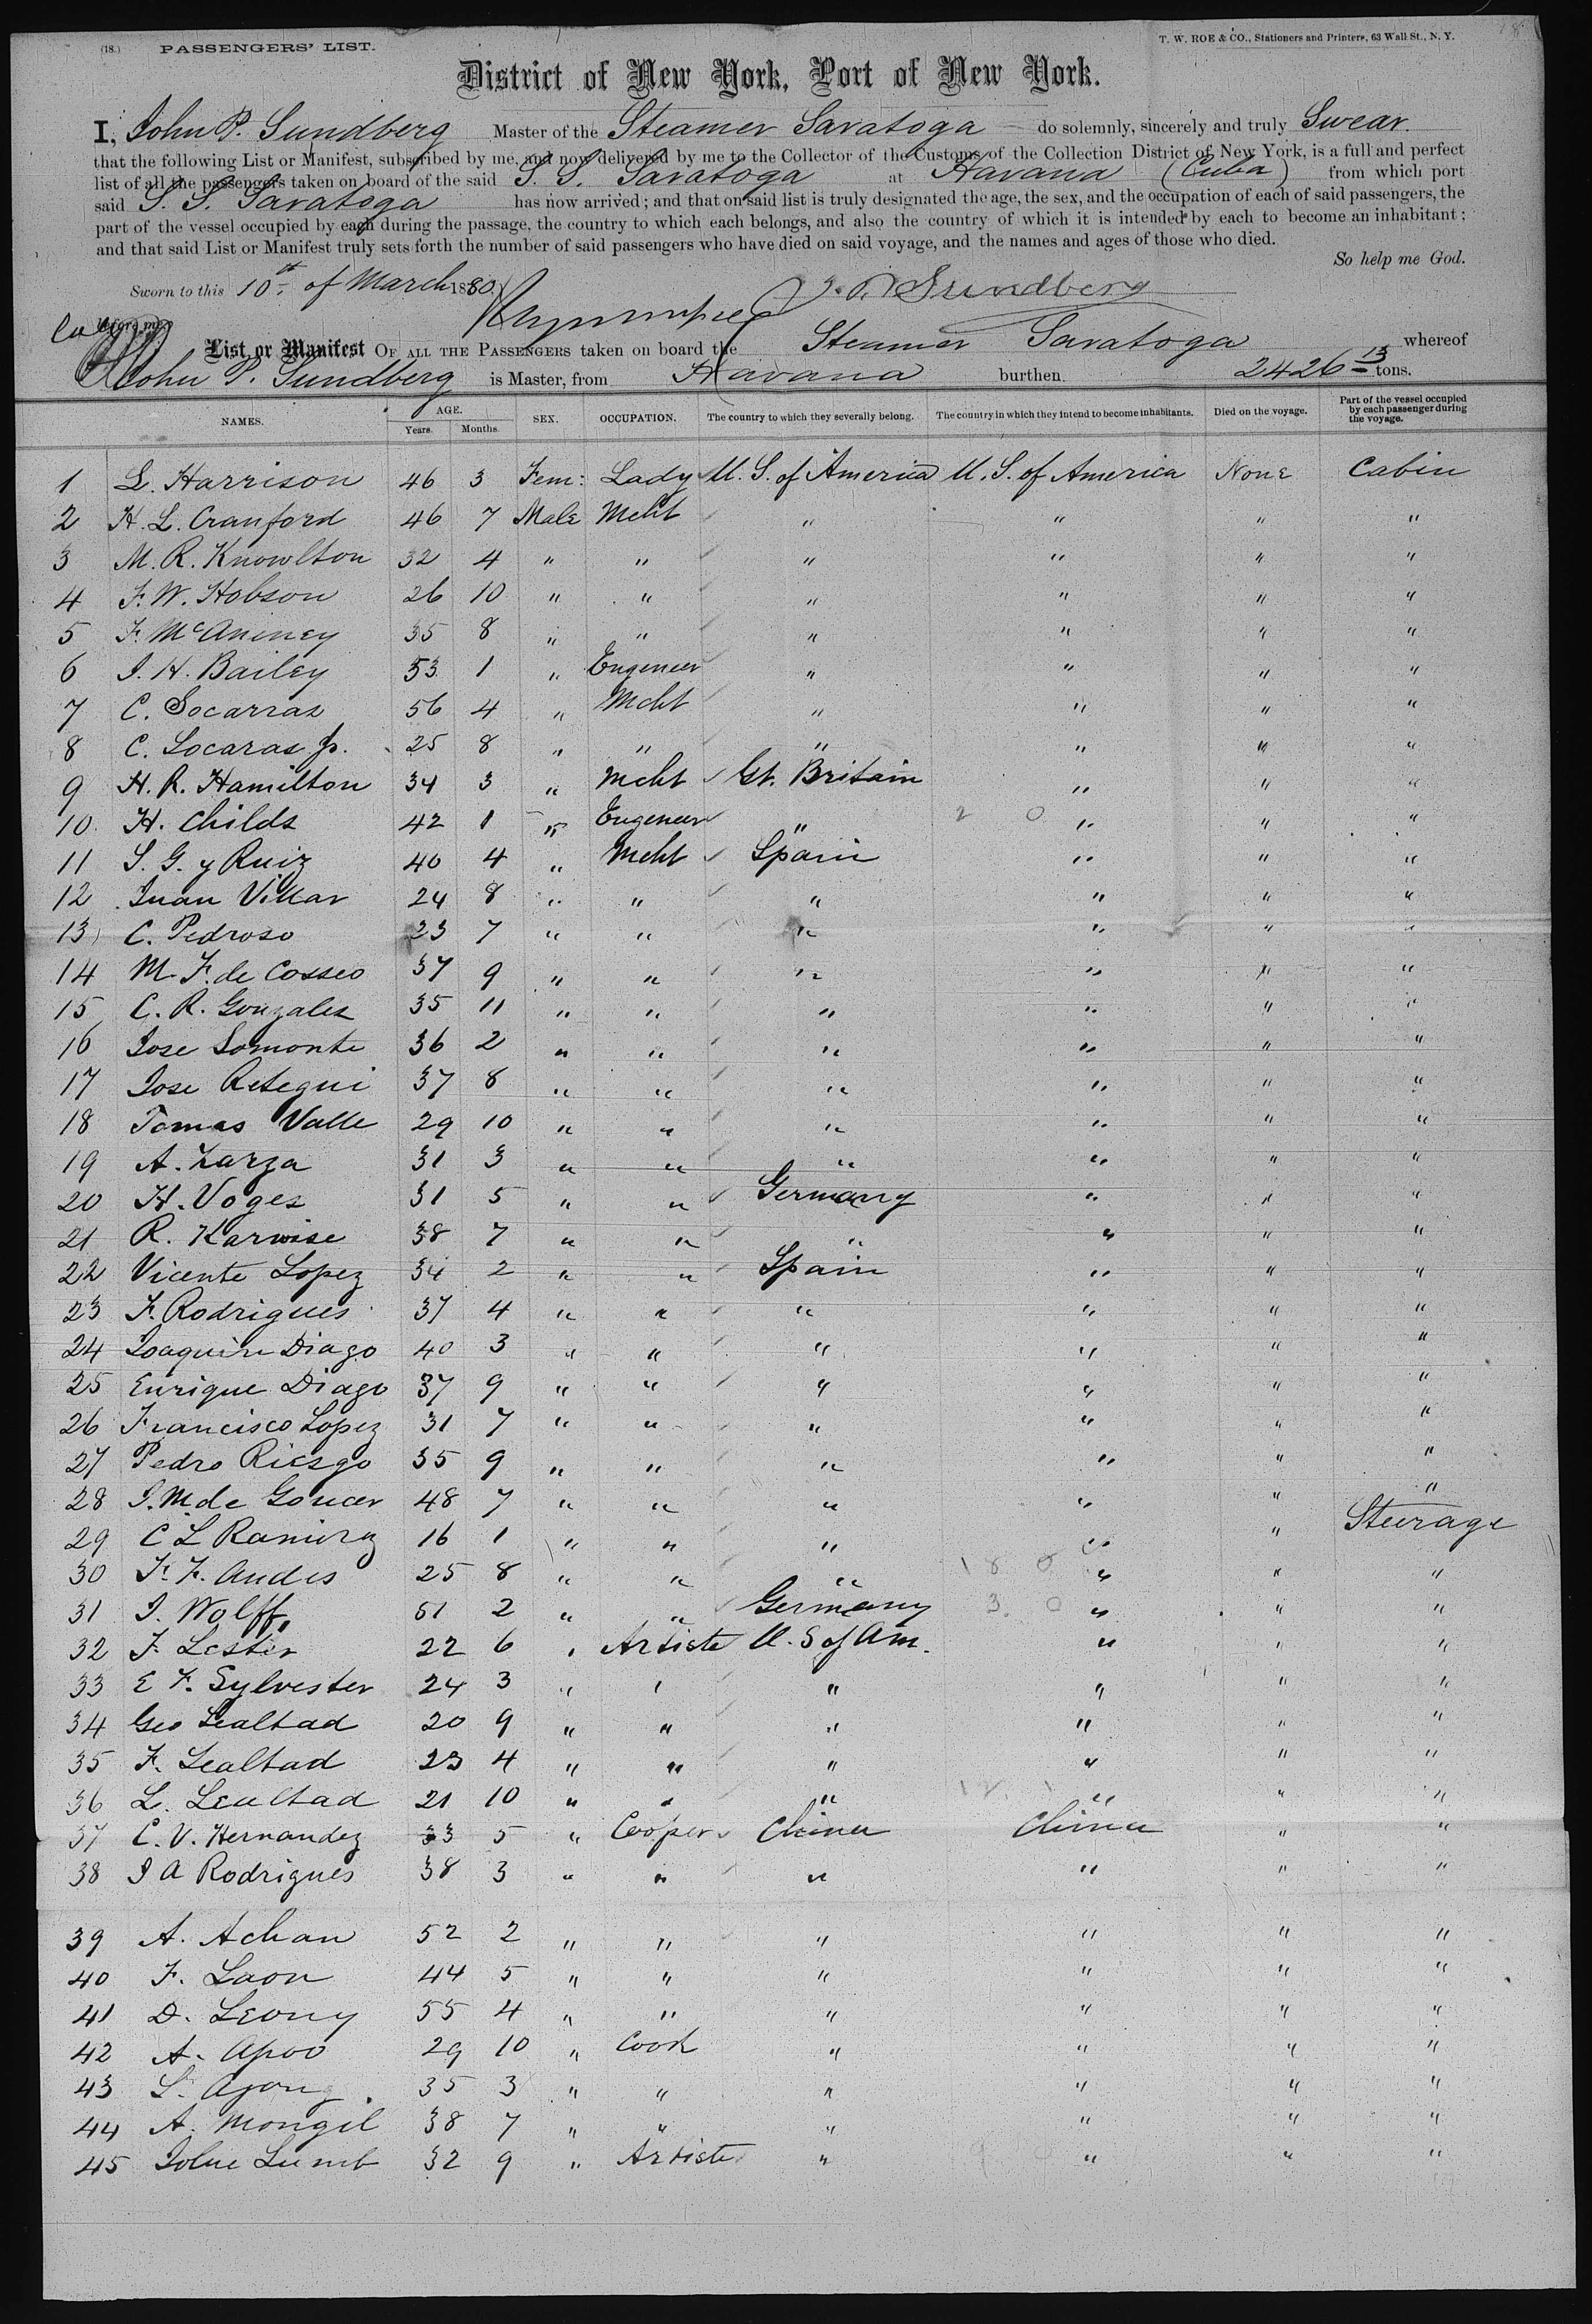 (18.) PASSENGERS' LIST.
T. W. ROE & CO., Stationers and Printers, 63 Wall St., N. Y.
District of New York, Port of New York.
I, John P. Sundberg Master of the Steamer Saratoga do solemnly, sincerely and truly Swear.
that the following List or Manifest, subscribed by me, and now delivered by me to the Collector of the Customs of the Collection District of New York, is a full and perfect
list of all the passengers taken on board of the said S. S. Saratoga at Havana (Cuba) from which port
said S. S. Saratoga has now arrived; and that on said list is truly designated the age, the sex, and the occupation of each of said passengers, the
part of the vessel occupied by each during the passage, the country to which each belongs, and also the country of which it is intended by each to become an inhabitant;
and that said List or Manifest truly sets forth the number of said passengers who have died on said voyage, and the names and ages of those who died.
So help me God.
Sworn to this 10th of March 1880.
J. P. Sundberg
before me
List, or Manifest OF ALL THE PASSENGERS taken on board the Steamer Saratoga whereof
John P. Sundberg is Master, from Havana burthen 2426 13 tons.
NAMES. AGE. Years. Months. SEX. OCCUPATION. The country to which they severally belong. The country in which they intend to become inhabitants. Died on the voyage. Part of the vessel occupied by each passenger during the voyage.
1 L. Harrison 46 3 Fem: Lady U. S. of America U. S. of America None Cabin
2 H. L. Cranford 46 7 Male Mcht " " " "
3 M. R. Knowlton 32 4 " " " " " "
4 F. W. Hobson 26 10 " " " " " "
5 F. McAniney 35 8 " " " " " "
6 J. H. Bailey 53 1 " Engeneer " " " "
7 C. Socarras 56 4 " Mcht " " " "
8 C. Socaras Jr. 25 8 " " " " " "
9 H. R. Hamilton 34 3 " Mcht Gt. Britain " " "
10 H. Childs 42 1 " Engeneer " 2 0 " " "
11 S. G. y Ruiz 40 4 " Mcht Spain " " "
12 Juan Villar 24 8 " " " " " "
13 C. Pedroso 23 7 " " " " " "
14 M. F. de Cosseo 37 9 " " " " " "
15 C. R. Gonzales 35 11 " " " " " "
16 Jose Somonte 36 2 " " " " " "
17 Jose Retegui 37 8 " " " " " "
18 Tomas Valle 29 10 " " " " " "
19 A. Zarza 31 3 " " " " " "
20 H. Voges 31 5 " " Germany " " "
21 R. Karwise 38 7 " " " " " "
22 Vicente Lopez 34 2 " " Spain " " "
23 F. Rodrigues 37 4 " " " " " "
24 Joaquin Diago 40 3 " " " " " "
25 Enrique Diago 37 9 " " " " " "
26 Francisco Lopez 31 7 " " " " " "
27 Pedro Riesgo 35 9 " " " " " "
28 J. M. de Goucer 48 7 " " " " " "
29 C L Ramirez 16 1 " " " " " Steerage
30 F. F. Andes 25 8 " " " 18 0 " " "
31 J. Wolff 51 2 " " Germany 3. 0 " " "
32 F. Lester 22 6 " Artiste U. S of Am. " " "
33 E F. Sylvester 24 3 " " " " " "
34 Geo Lealtad 20 9 " " " " " "
35 F. Lealtad 23 4 " " " " " "
36 L. Lealtad 21 10 " " " 12 " " "
37 C. V. Hernandez 33 5 " Cooper China China " "
38 J A Rodrigues 38 3 " " " " " "
39 A. Achan 52 2 " " " " " "
40 F. Laon 44 5 " " " " " "
41 D. Leony 55 4 " " " " " "
42 A. Apoo 29 10 " Cook " " " "
43 L. Ajong 35 3 " " " " " "
44 A. Mongil 38 7 " " " " " "
45 John Lumb 32 9 " Artiste " " " "